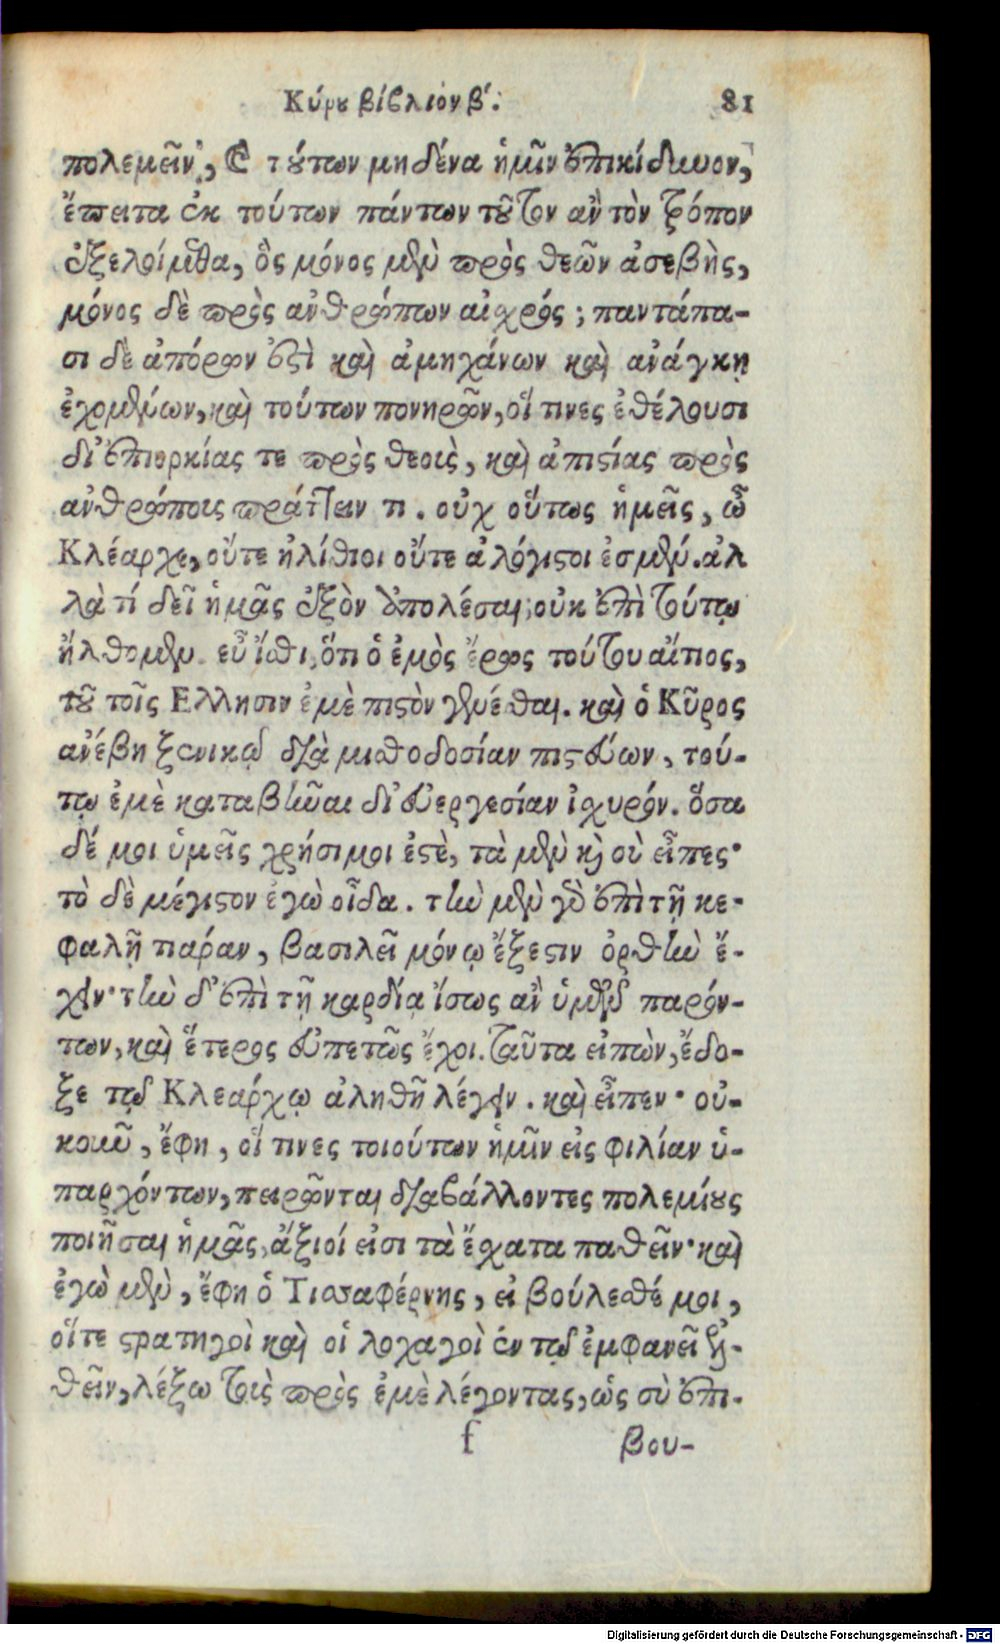 Κύρου βιβλίον β΄. 81
πολεμεῖν, καὶ τούτων μηδένα ἡμῖν ἐπικίνδυνον,
ἔπειτα ἐκ τούτων πάντων τοῦτον ἂν τὸν τρόπον
ἐξελοίμεθα, ὃς μόνος μὲν πρὸς θεῶν ἀσεβὴς,
μόνος δὲ πρὸς ἀνθρώπων αἰσχρός; παντάπα-
σι δὲ ἀπόρων ἐστὶ καὶ ἀμηχάνων καὶ ἀνάγκῃ
ἐχομένων, καὶ τούτων πονηρῶν, οἵ τινες ἐθέλουσι
δι' ἐπιορκίας τε πρὸς θεοὺς, καὶ ἀπιστίας πρὸς
ἀνθρώπους πράττειν τι. οὐχ οὕτως ἡμεῖς, ὦ
Κλέαρχε, οὔτε ἠλίθιοι οὔτε ἀλόγιστοι ἐσμέν. ἀλ
λὰ τί δεῖ ἡμᾶς ἐξὸν ἀπολέσαι; οὐκ ἐπὶ τούτῳ
ἤλθομεν. εὖ ἴσθι, ὅτι ὁ ἐμὸς ἔρως τούτου αἴτιος,
τοῦ τοῖς Ελλησιν ἐμὲ πιστὸν γενέσθαι. καὶ ὁ Κῦρος
ἀνέβη ξενικῷ διὰ μισθοδοσίαν πιστεύων, τού-
τῳ ἐμὲ καταβῆναι δι' εὐεργεσίαν ἰσχυρόν. ὅσα
δέ μοι ὑμεῖς χρήσιμοι ἐστὲ, τὰ μὲν καὶ σὺ εἶπες·
τὸ δὲ μέγιστον ἐγὼ οἶδα. τὴν μὲν γὸ ἐπὶ τῇ κε-
φαλῇ τιάραν, βασιλεῖ μόνῳ ἔξεστιν ὀρθὴν ἔ-
χειν· τὴν δ' ἐπὶ τῇ καρδίᾳ ἴσως ἂν ὑμῶν παρόν-
των, καὶ ἕτερος εὐπετῶς ἔχοι. ταῦτα εἰπὼν, ἔδο-
ξε τῷ Κλεάρχῳ ἀληθῆ λέγειν. καὶ εἶπεν· οὐ-
κοῦν, ἔφη, οἵ τινες τοιούτων ἡμῖν εἰς φιλίαν ὑ-
παρχόντων, πειρῶνται διαβάλλοντες πολεμίους
ποιῆσαι ἡμᾶς, ἄξιοί εἰσι τὰ ἔσχατα παθεῖν· καὶ
ἐγὼ μὲν, ἔφη ὁ Τισσαφέρνης, εἰ βούλεσθέ μοι,
οἵτε στρατηγοὶ καὶ οἱ λοχαγοὶ ἐν τῷ ἐμφανεῖ ἐλ-
θεῖν, λέξω τοὺς πρὸς ἐμὲ λέγοντας, ὡς σὺ ἐπι-
f βου-
Digitalisierung gefördert durch die Deutsche Forschungsgemeinschaft - DFG